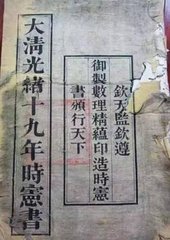 欽天監欽遵
御製數理精蘊印造時憲
書頒行天下
大清光緒十九年時憲書